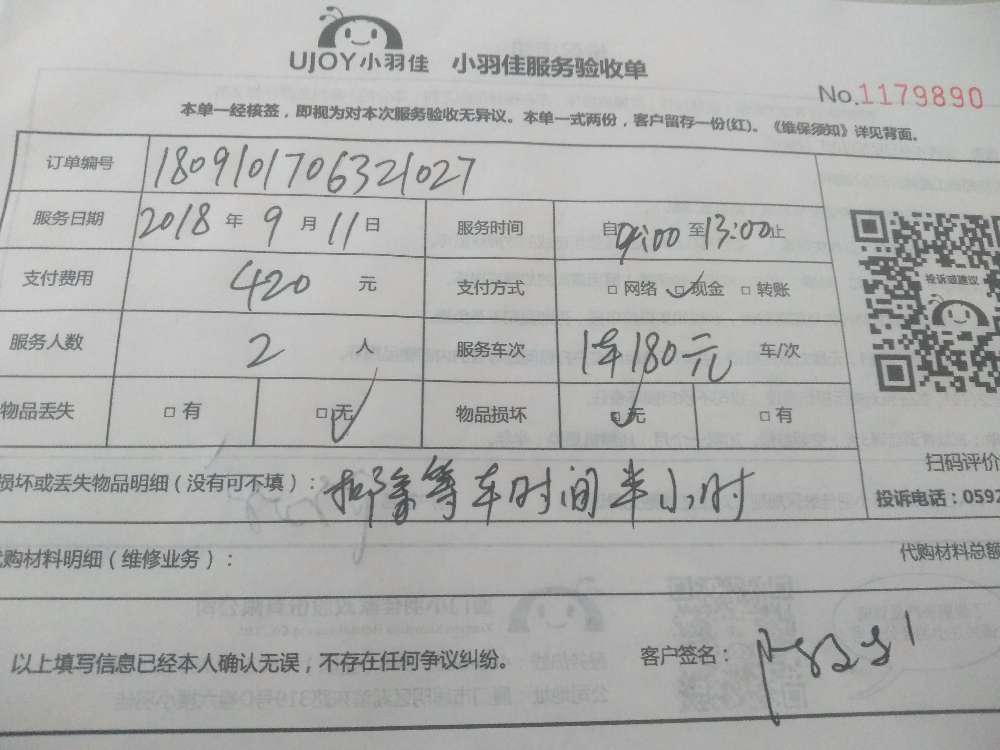 UJOY小羽佳 小羽佳服务验收单
No.1179890
本单一经核签，即视为对本次服务验收无异议。本单一式两份，客户留存一份(红)。《维保须知》详见背面。
订单编号 1809101706321027
服务日期 2018 年 9 月 11 日 服务时间 自9:00至13:00止
支付费用 420 元 支付方式 □ 网络 □ 现金 □ 转账
投诉或建议
服务人数 2 人 服务车次 1车180元 车/次
物品丢失 □ 有 □ 无 物品损坏 □ 无 □ 有
扫码评价
损坏或丢失物品明细（没有可不填）：扣除等车时间半小时
投诉电话：0592
代购材料明细（维修业务）：
代购材料总额
以上填写信息已经本人确认无误，不存在任何争议纠纷。
客户签名：